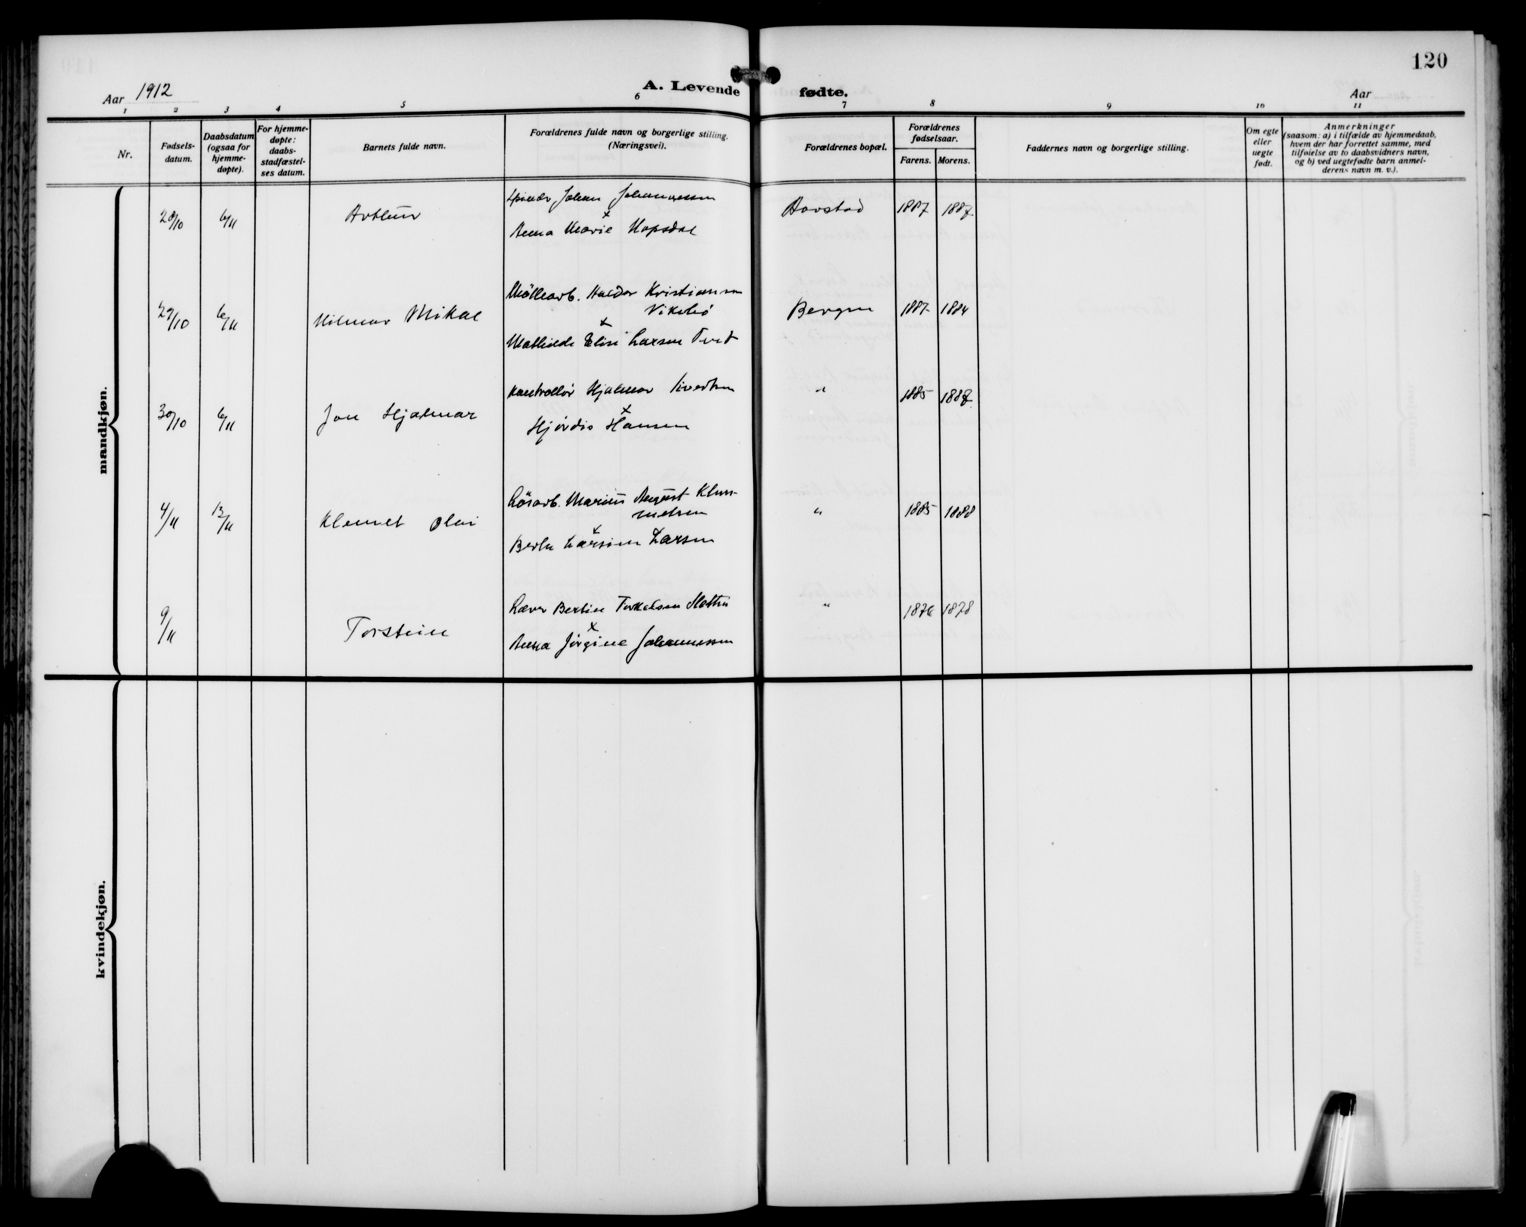 120
Aar 1912
A. Levende fødte.
Aar
1 2 3 4 5 6 7 8 9 10 11
Nr.
Fødsels-
datum.
Daabsdatum
(ogsaa for
hjemme-
døpte).
For hjemme-
døpte:
daabs-
stadfæstel-
ses datum.
Barnets fulde navn.
Forældrenes fulde navn og borgerlige stilling.
(Næringsvei).
Forældrenes bopæl.
Forældrenes
fødselsaar.
Farens. Morens.
Faddernes navn og borgerlige stilling.
Om egte
eller
uegte
født.
Anmerkninger
(saasom: a) i tilfælde av hjemmedaab,
hvem der har forrettet samme, med
tilføielse av to daabsvidners navn,
og b) ved uegtefødte barn anmel-
derens navn m. v.).
mandkjøn.
Johan Johannessen
20/10 6/11 Arthur Aarstad 1887 1887
x
Anna Marie Hopsdal
Møllearb. Haldor Kristiansen
Vikebø
29/10 6/11 Hilmar Mikal Bergen 1887 1884
x
Mathilde Elise Larsen
Kontrollør Hjalmar Sivertsen
30/10 6/11 Jon Hjalmar " 1885 1888
x
Hjørdis Hansen
Løsarb. Marius August Klem-
metsen
4/11 13/11 Klemet Olai " 1885 1888
x
Larsine Larsen
Bertin Torkelsen
9/11 Torstein " 1876 1878
x
Anna Jørgine Johannessen
kvindekjøn.